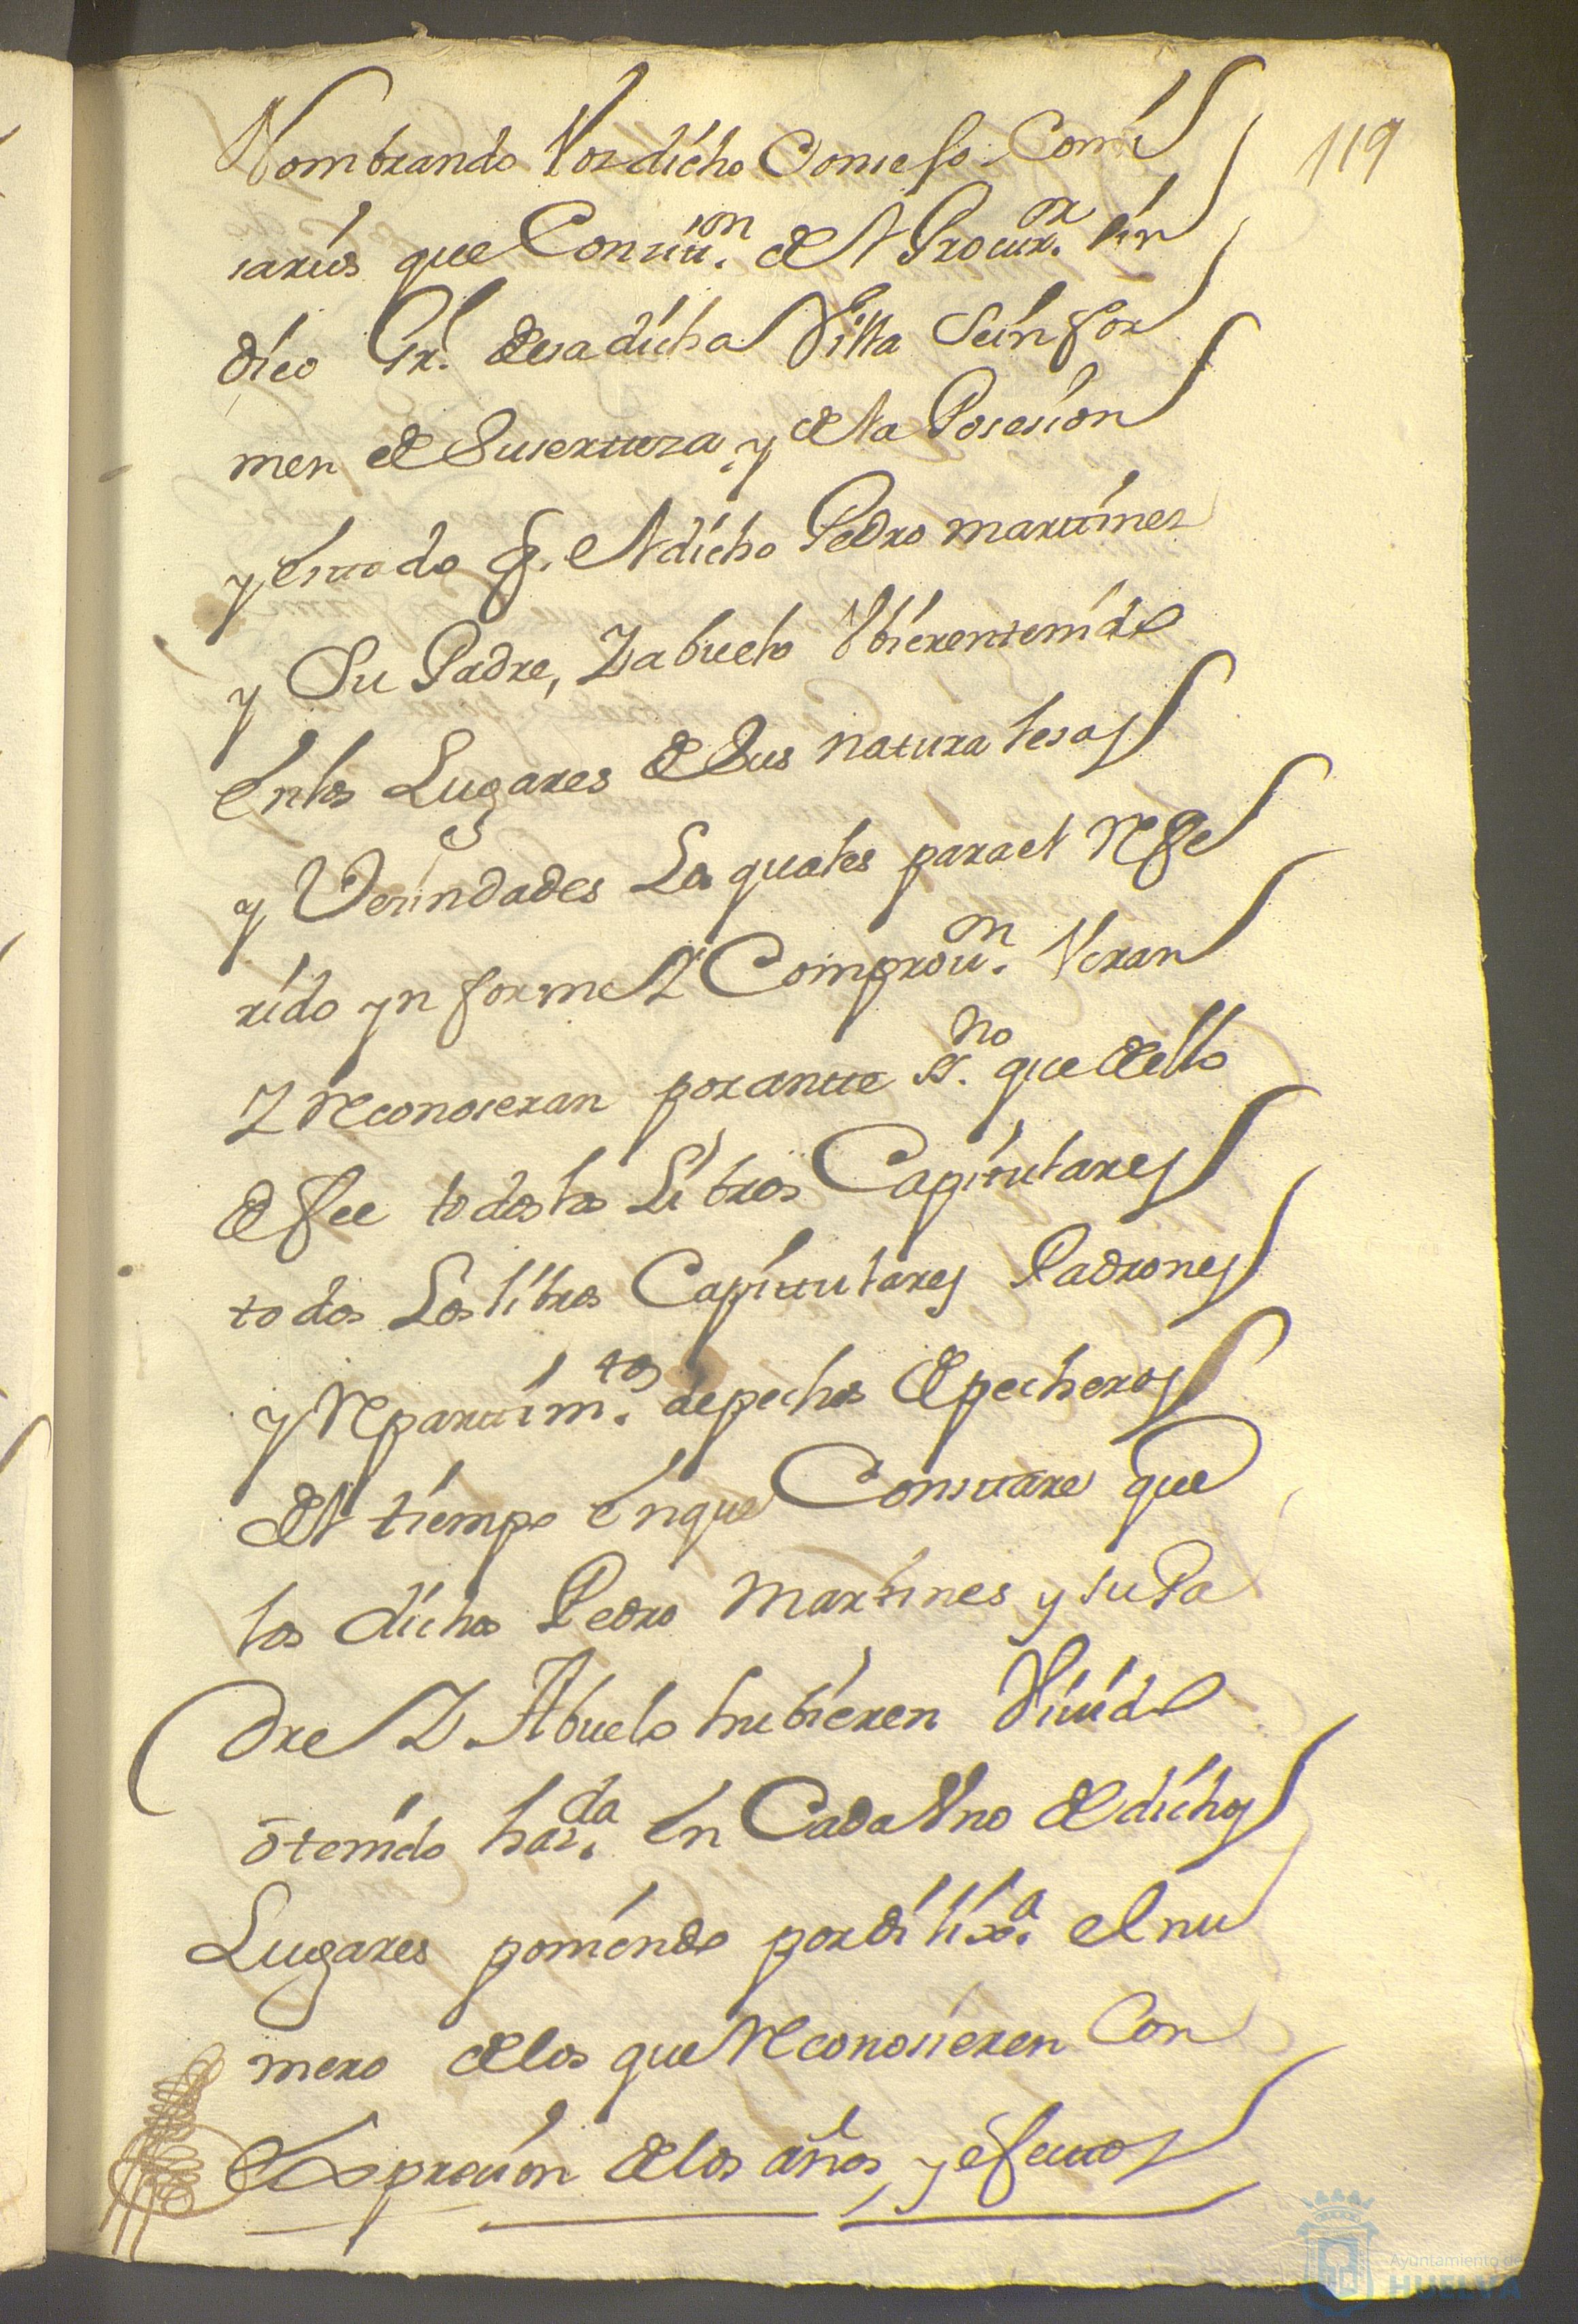 119
Nombrando Vos dicho Consejo Comi
sarios que Con zitt.on del Procur.or sin
dico Gr.l desa dicha Villa Seinfor
men de Susertteza, y dela Posesion
y Esttado q. el dicho Pedro marttines
y Su Padre, Y abuelo Ubierentenido
Enlos Lugares de Sus naturalesas
y Vesindades Los quales parael Refe
rido ynforme I Comprou.on Veran
Y Reconoseran porantte ss.no que dello
de fee todoslos Libros Capitulares
todos Los libros Capittulares Padrones
y Reparttim.tos depechos de pecheros
del tiempo Enque Consttare que
los dichos Pedro Martines y su Pa
dre Y Abuelo hubieren Viuido
ō tenido haz.da En Cada Vno de dichos
Lugares poniendo por dilix.a el nu
mero delos que Reconosieren Con
Expresion delos años, y efecttos
Ayuntamiento de
HUELVA